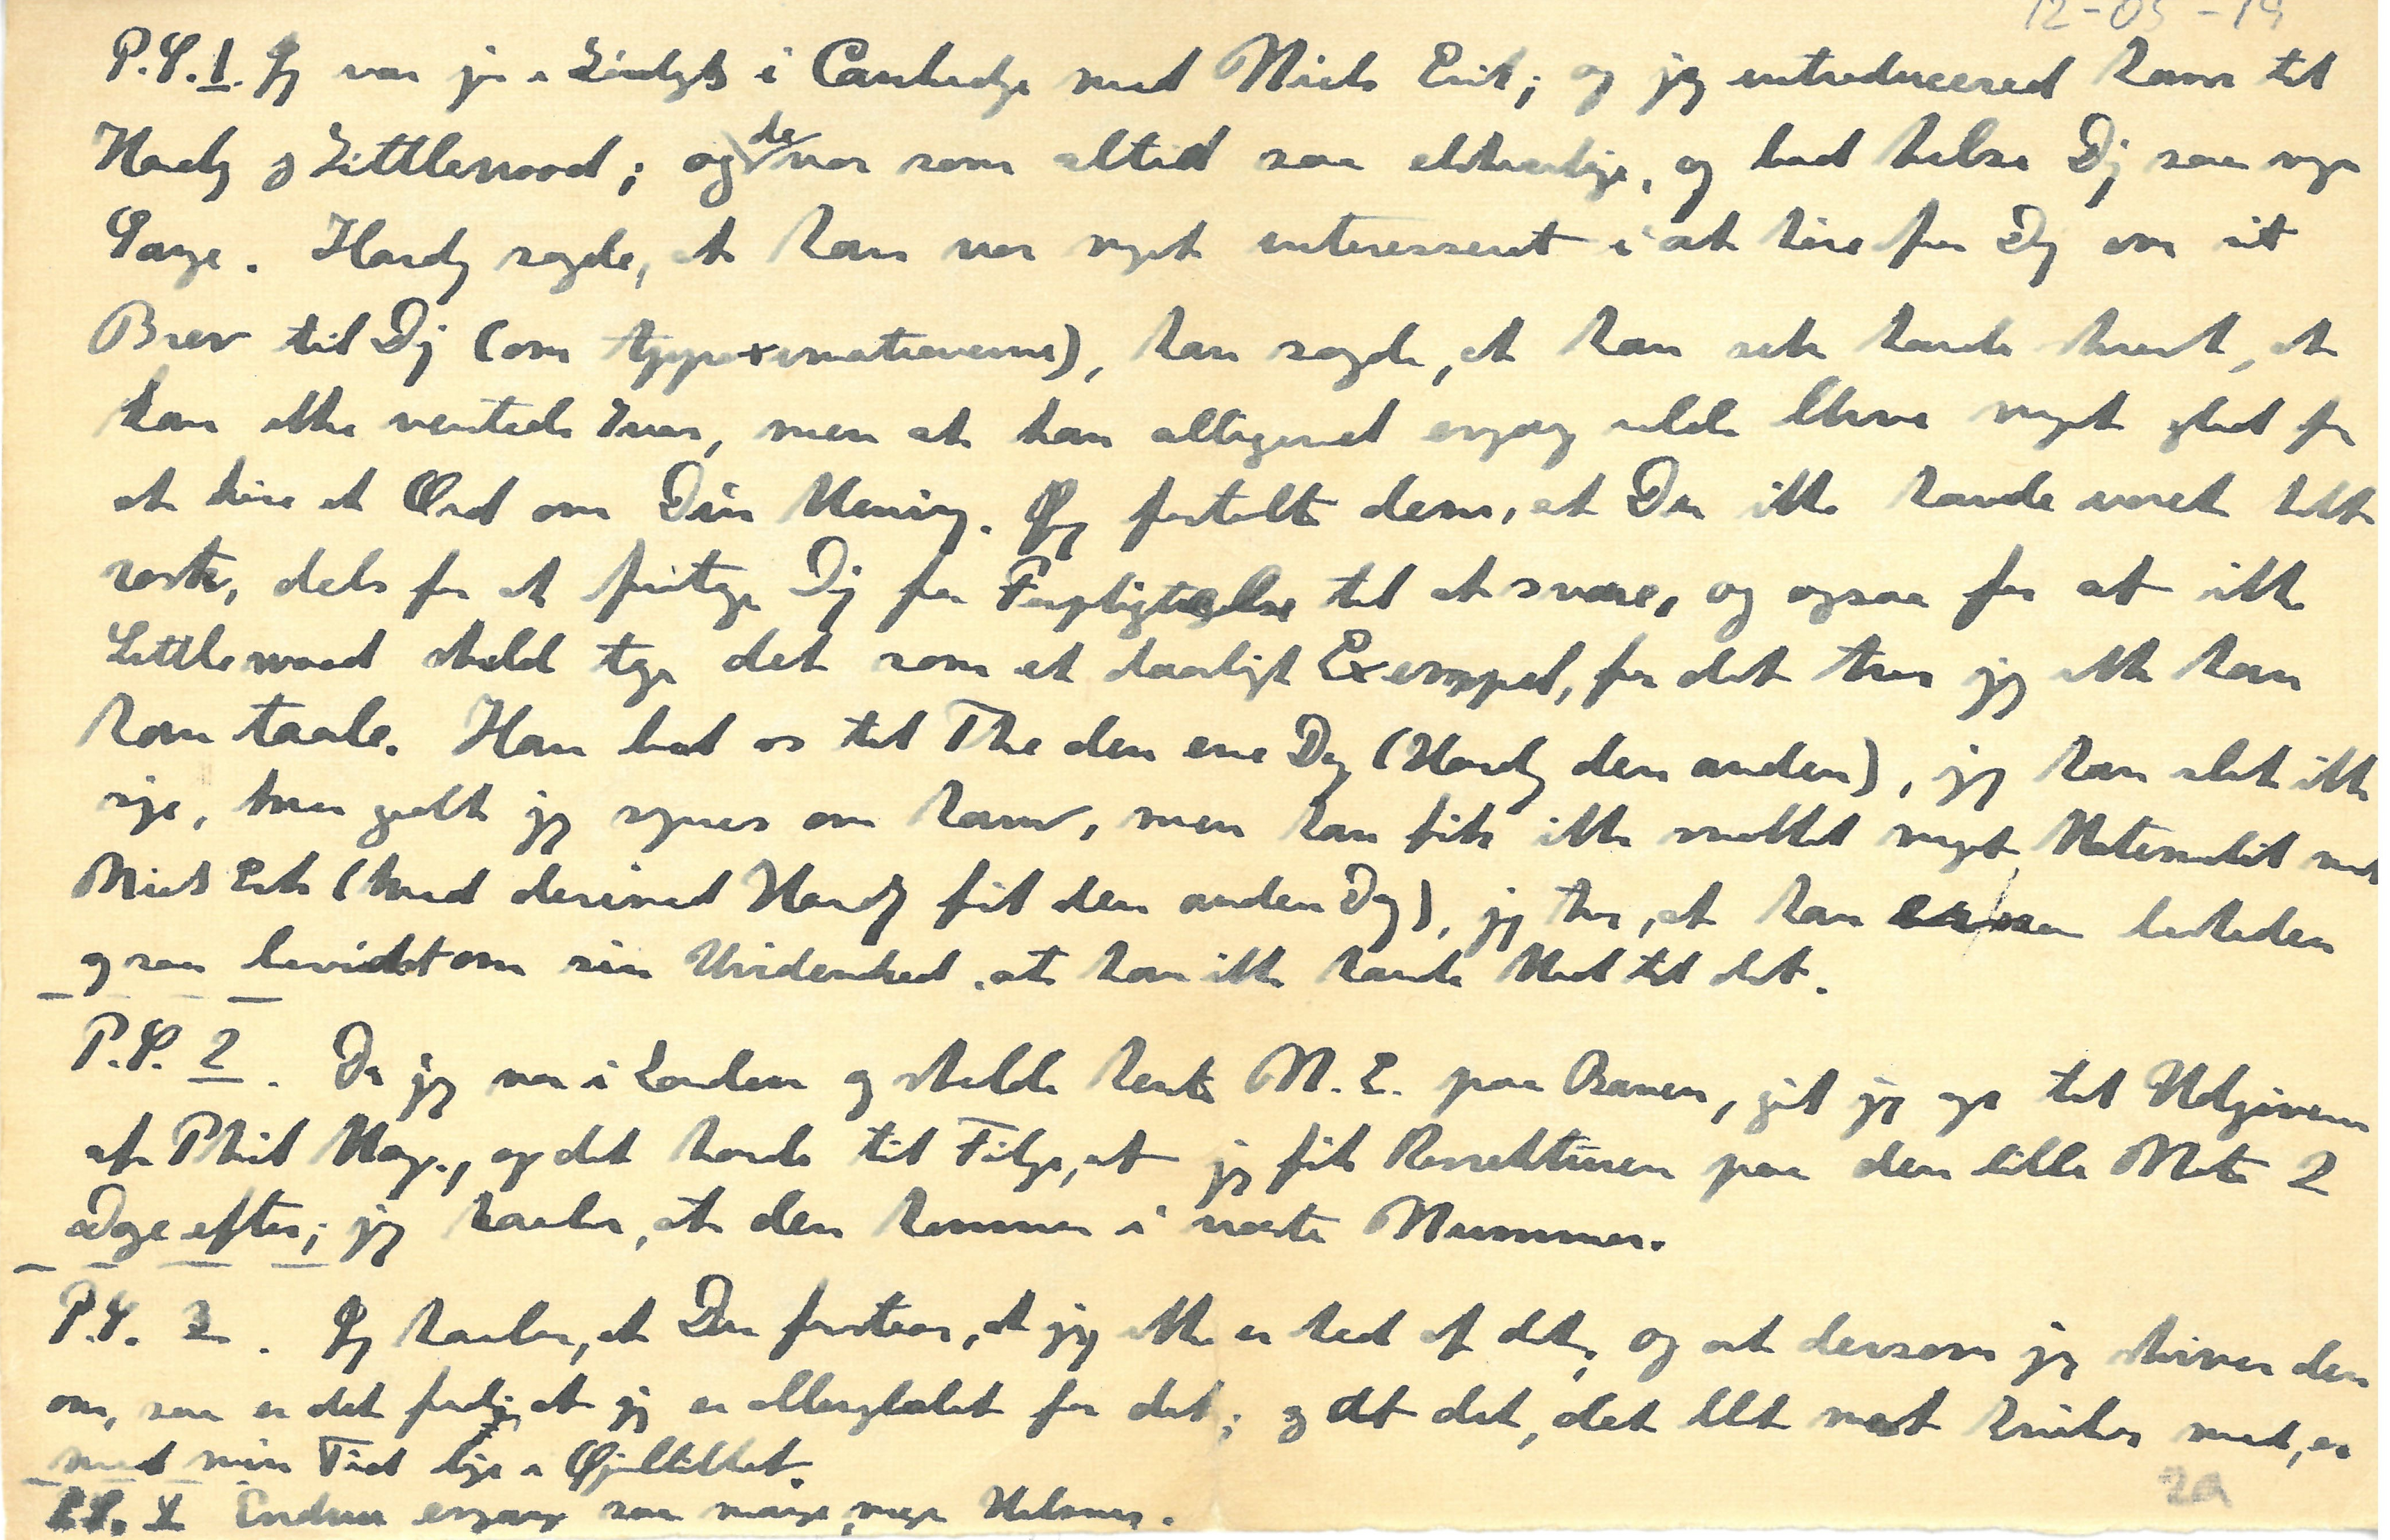 12-03-14
P.S. 1. Jeg var jo i Cambridge med Niels Erik; og jeg introducered ham til
Hardy og Littlewood; og de var som altid saa elskværdige, og bad hilse Dig saa mange
Gange. Hardy sagde, at han var meget interesseret i at høre fra Dig om sit
Brev til Dig (om Approximationerne), han sagde, at han nok havde skrevet, at
han ikke ventede Svar, men at han alligevel engang vilde blive meget glad for
at høre et Ord om Din Mening. Jeg fortalte dem, at Du ikke havde været helt
rask, dels for at fritage Dig for Forpligtelse til at svare, og ogsaa for at ikke
Littlewood skuld tage det som et daarligt Exempel, for det tror jeg ikke han
kan taale. Han bad os til The den ene Dag (Hardy den anden), jeg kan slet ikke
sige, hvor godt jeg synes om ham, men han fik ikke snakket noget Matematik med
Niels Erik (hvad derimod Hardy fik den anden Dag), jeg tror, at han er saa beskeden
og saa bevidst om sin Uvidenhed, at han ikke havde Mod til det.
P.S. 2. Da jeg var i London og skulde hente N.E. paa Banen, gik jeg op til Udgiveren
af Phil Mag., og det havde til Følge, at jeg fik Korrekturen paa den lille Note 2
Dage efter; jeg haaber, at den kommer i næste Nummer.
P.S. 3. Jeg haaber, at Du forstaar, at jeg ikke er ked af det, og at dersom jeg skriver den
om, saa er det fordi, at jeg er allergladest for det; og at det, det blot mest kniber med, er
med min Tid lige i Øjeblikket.
P.S. 4 Endnu engang saa mange, mange Hilsner.
2a